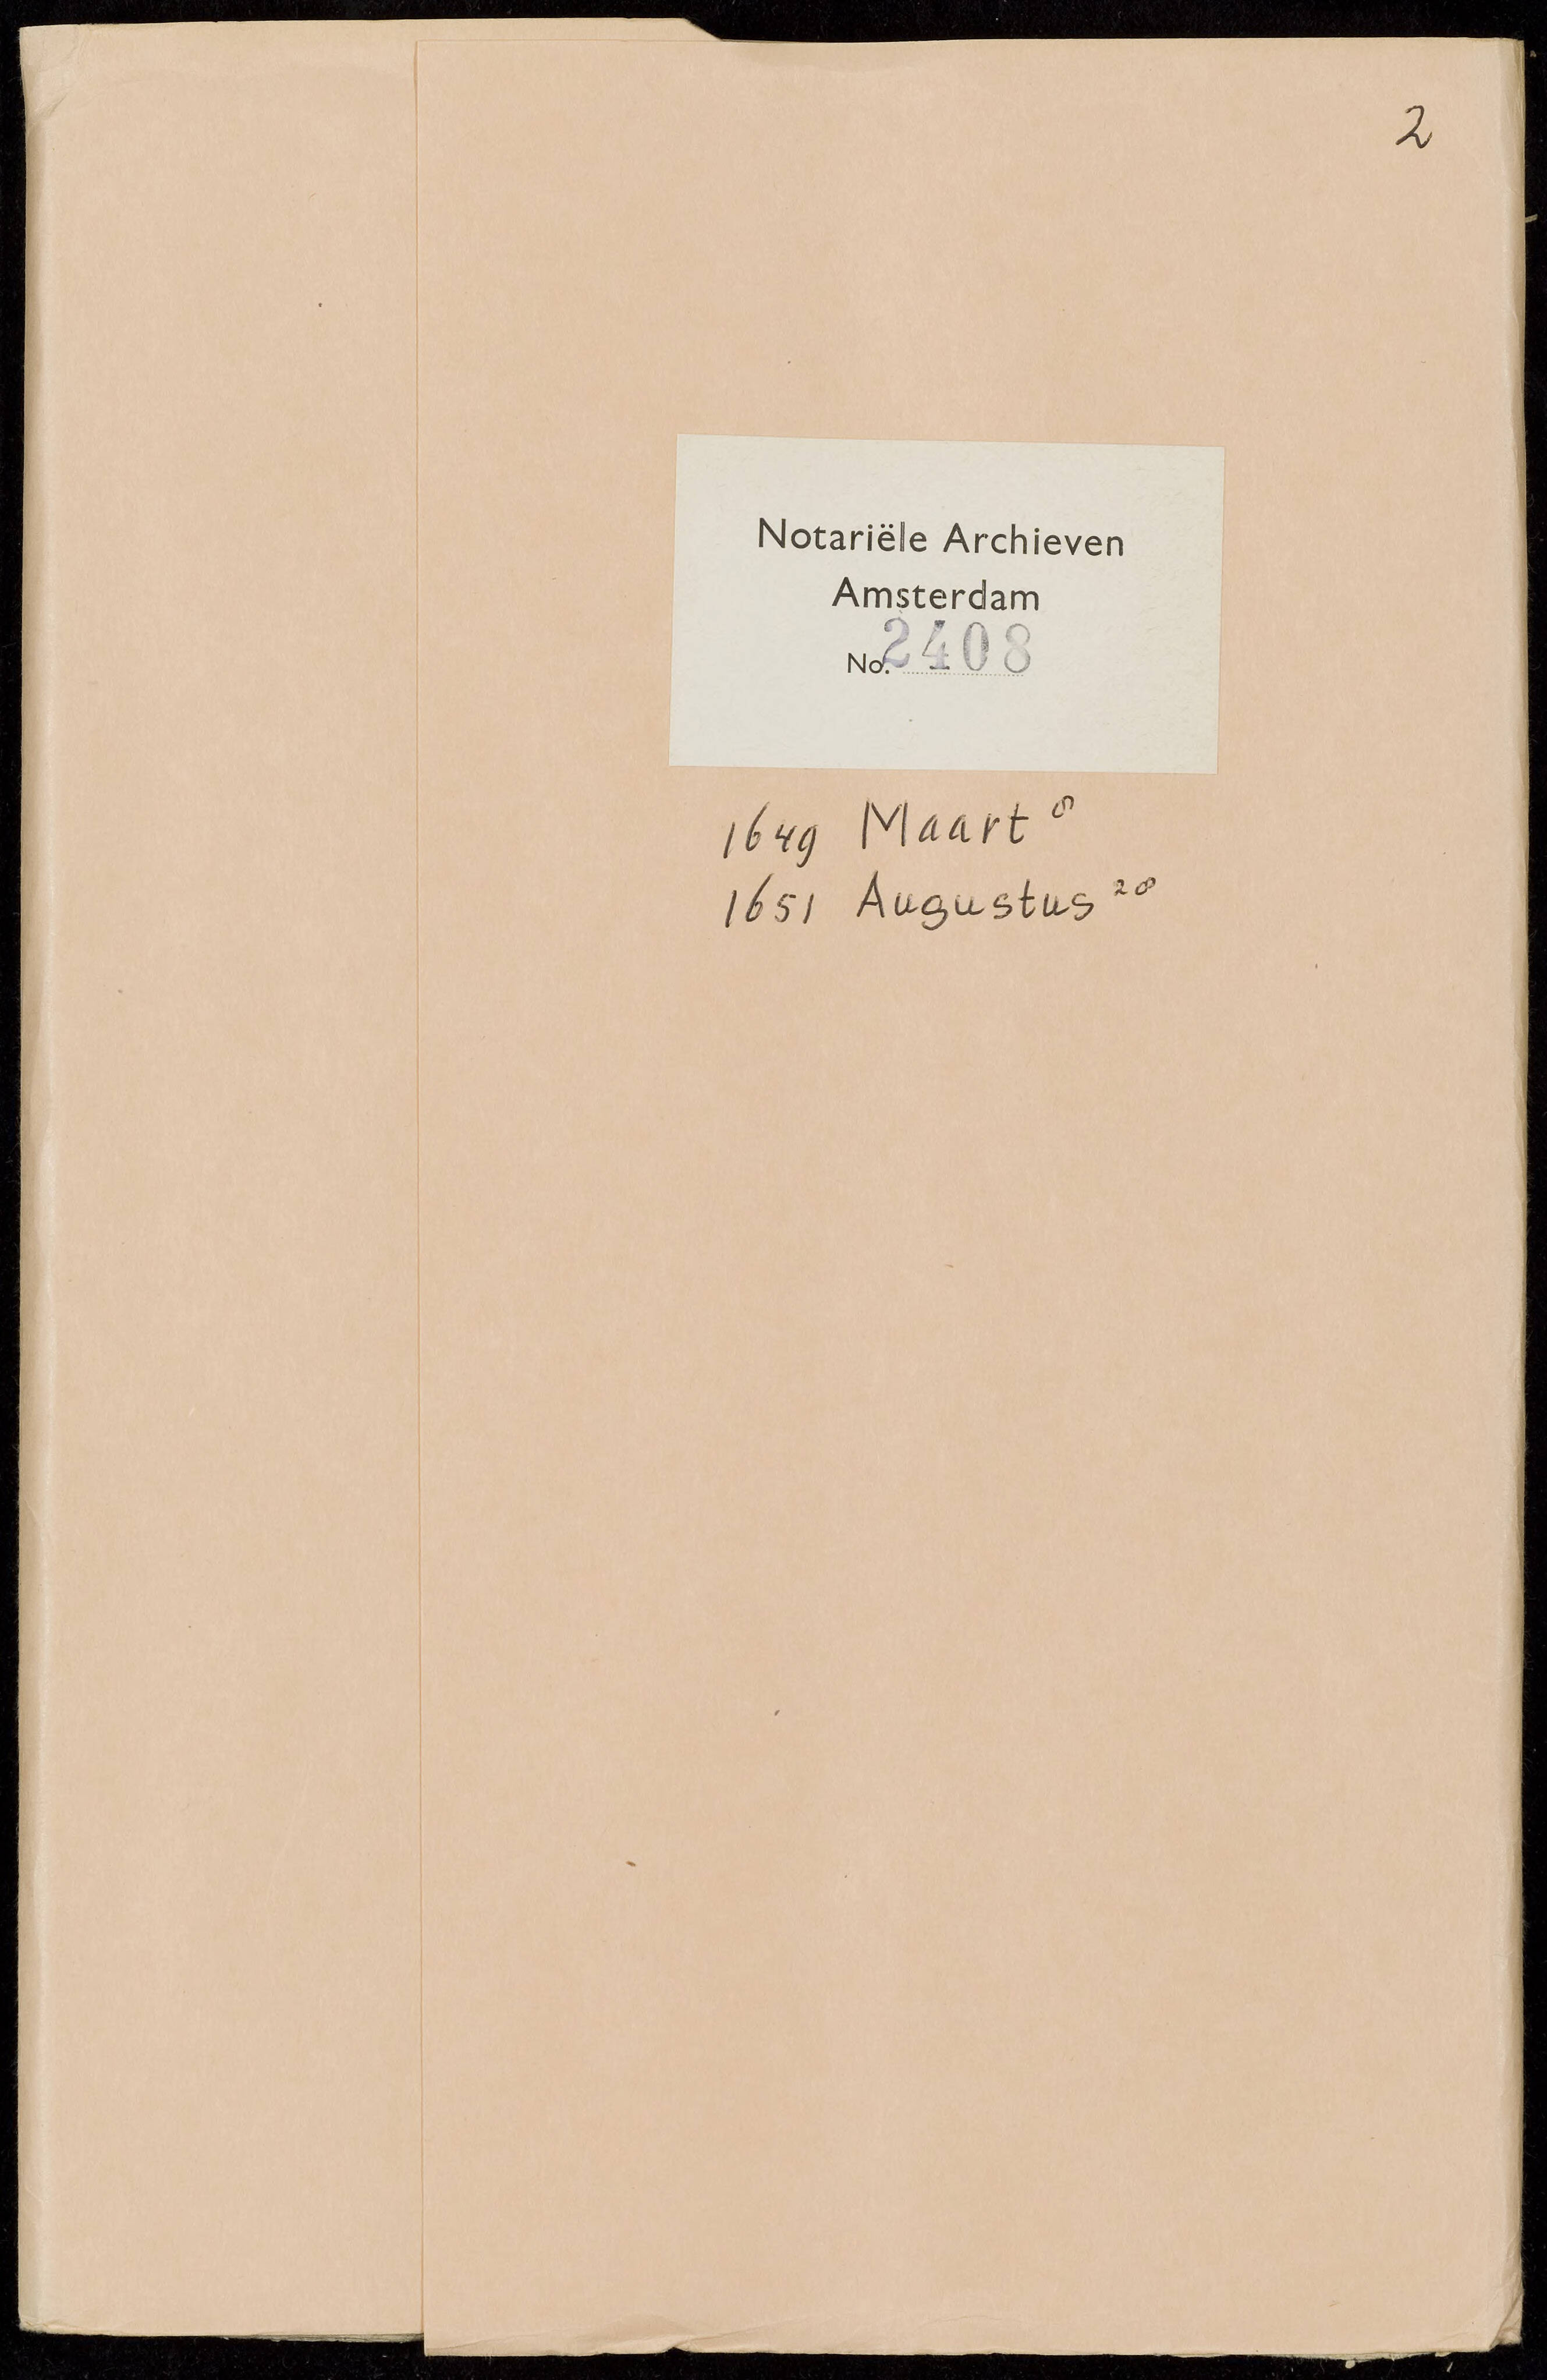 2
Notariële Archieven
Amsterdam
No. 2408
1649 Maart 8
1651 Augustus 28